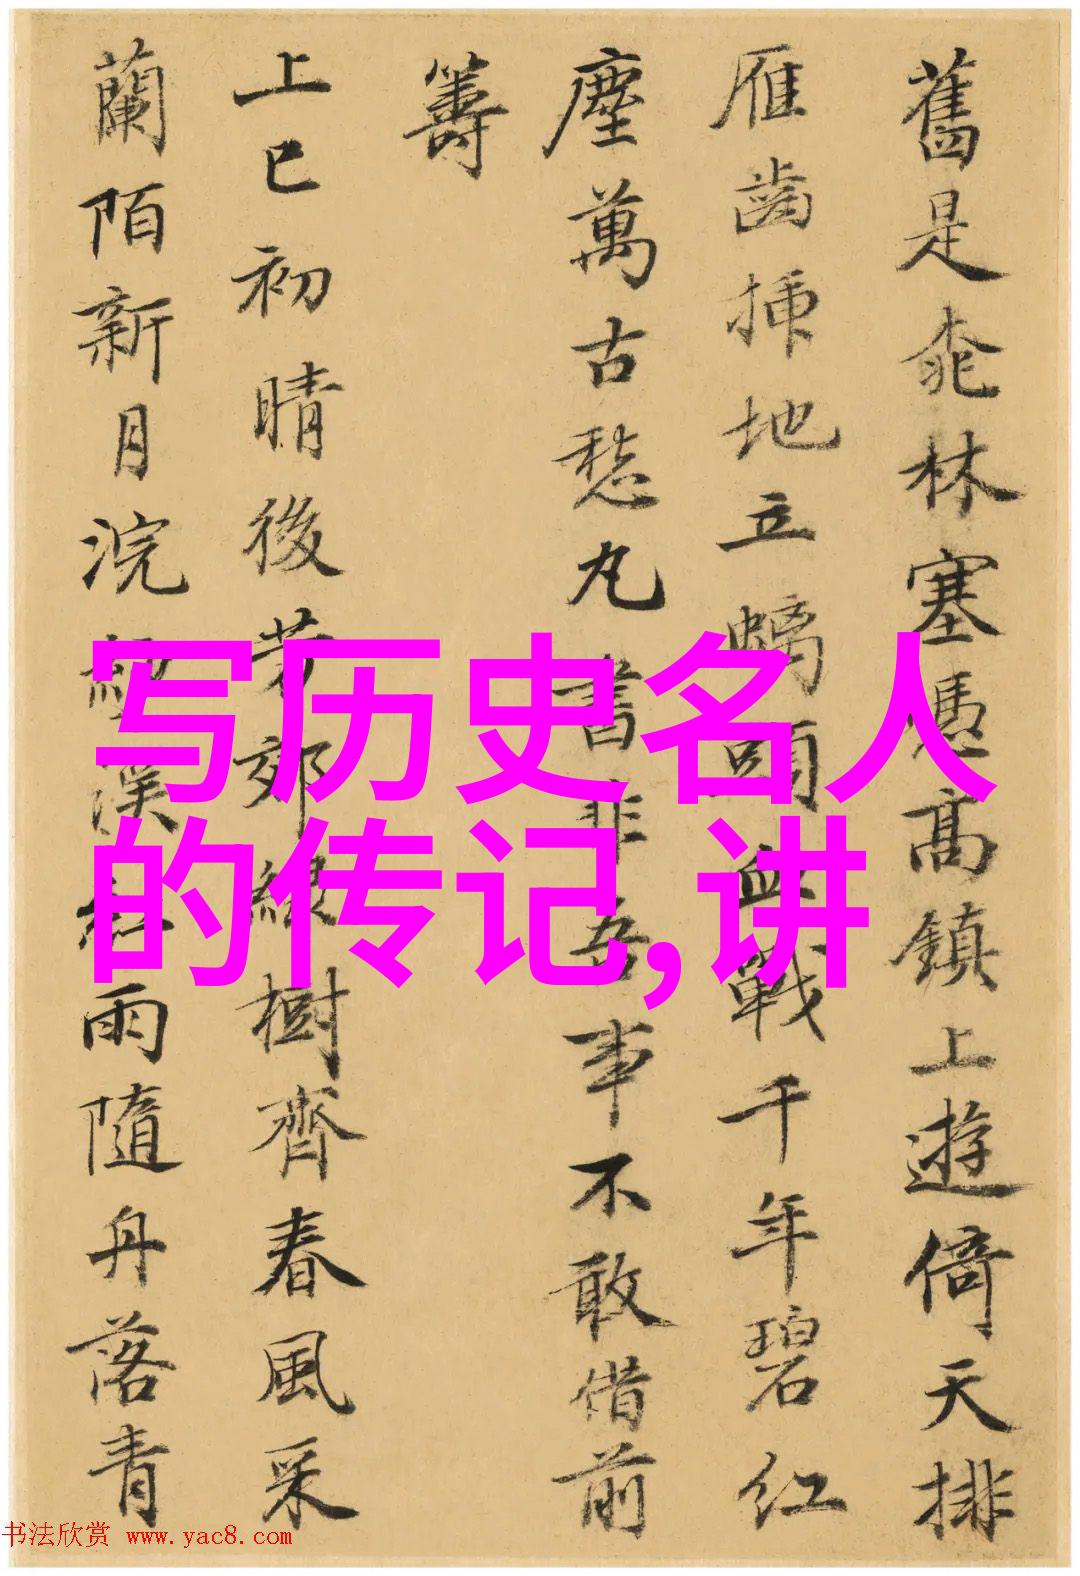 舊是桃林塞憑高鎮上遊倚天排
雁齒插地立螭頭血戰千年碧紅
塵萬古愁丸書非吾事不敢借前
籌
上巳初晴後芳郊綠樹齊春風采
蘭陌新月浣紗溪紅雨隨舟落青
写历史名人
的传记,讲
书法欣赏 www.yac8.com